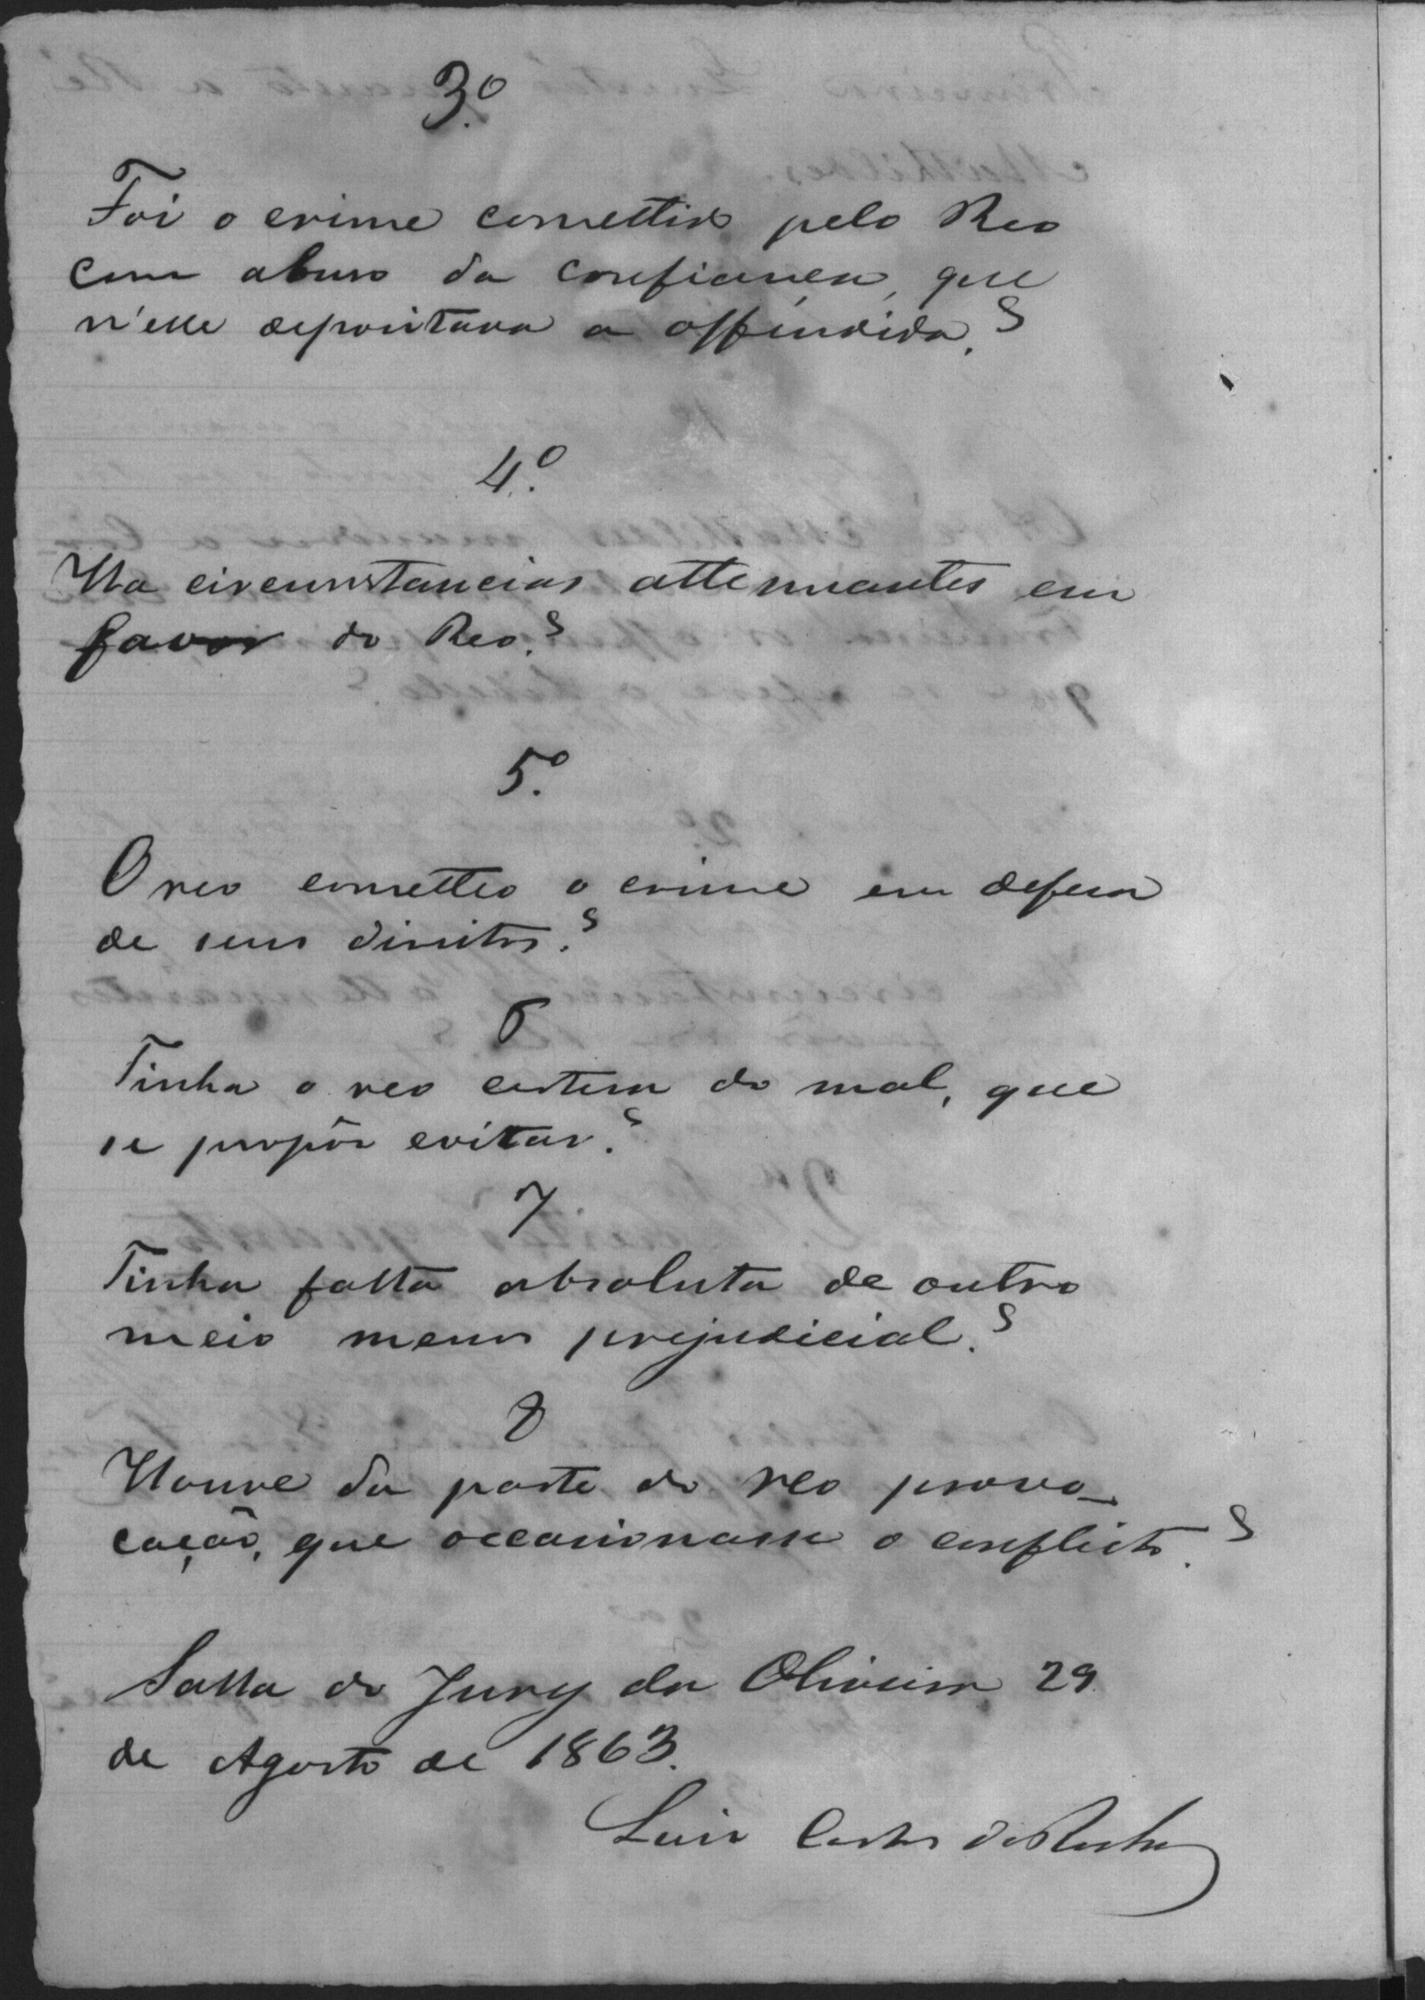 3.º
Foi o crime comettido pelo Reo
com abuso da confiança, que
n'elle depositava a offendida.?
4.º
Ha circunstancias attenuantes em
favor do Reo.?
5.º
O reo cometteo o crime em defesa
de seus direitos.?
6
Tinha o reo certesa do mal, que
se propôs evitar.?
7
Tinha falta absoluta de outro
meio menos prejudicial.?
8
Houve da parte do reo provo-
cação, que occasionasse o conflicto.?
Salla do Jury da Oliveira 29
de Agosto de 1863.
Luis Carlos da Rocha